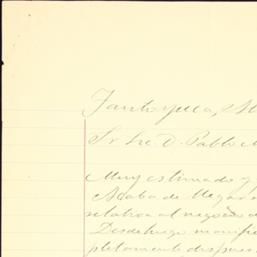 Santoyuca, M
Sr. Lic. D. Pablo M
Muy estimado y
Acaba de llegar a
relativa al negocio d
Desde luego manifie
pletamente dispues